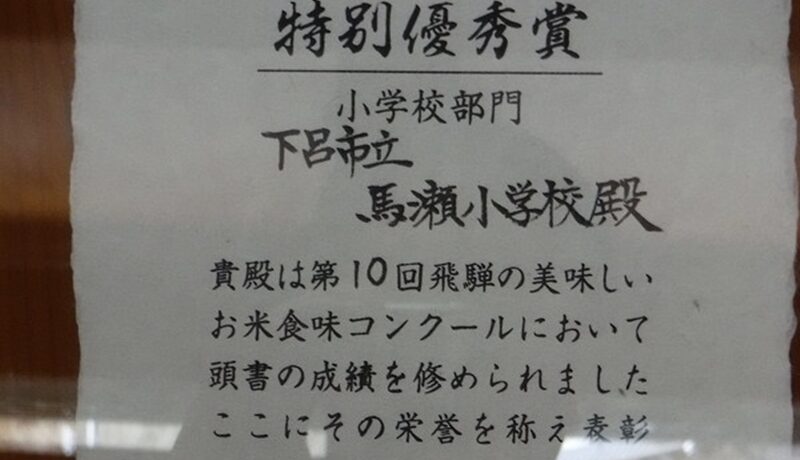 特別優秀賞
小学校部門
下呂市立
馬瀬小学校殿
貴殿は第10回飛騨の美味しい
お米食味コンクールにおいて
頭書の成績を修められました
ここにその栄誉を称え表彰